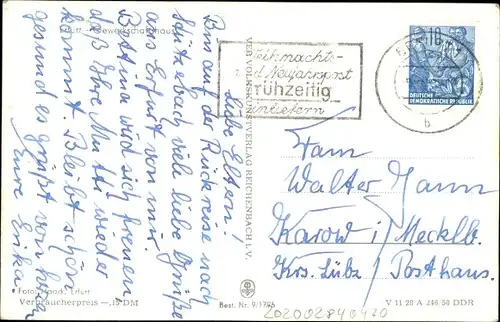 Erfurt - Gewerkschaftshaus
Liebe Eltern!
Bin auf der Rückreise nach
Stützerbach viele liebe Grüße
aus Erfurt von mir.
Bettina wird sich freuen
daß Ihre Mutti wieder
kommt. Bleibt schön
gesund es grüßt von Herzen
Eure Erika.
Weihnachts-
und Neujahrspost
frühzeitig
einliefern
10
DEUTSCHE
DEMOKRATISCHE REPUBLIK
b
VEB VOLKSKUNSTVERLAG REICHENBACH I. V.
Fam
Walter Jann
Karow i/ Mecklb.
Krs. Lübz / Posthaus.
Foto: Erfurt
Verbraucherpreis —,15 DM
Best. Nr. 9/1796
V 11 28 A 240 50 DDR
202002840420